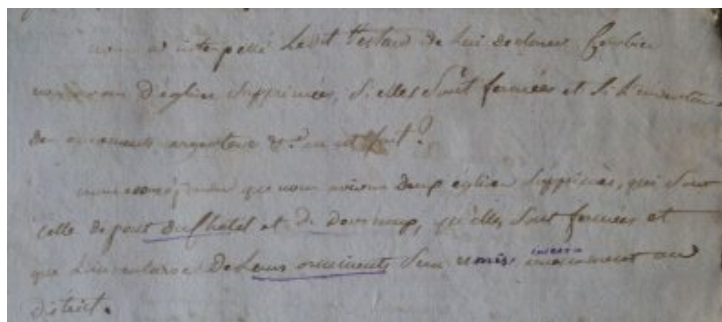 interpellé ledit Testard de lui declarer Combien
nous avons d'église Supprimées, si elles Sont fermées et si L'inventaire
de ornements argenterie & a en est fait ?
que nous avions deux église Supprimées, qui Sont
celle de pont du Chatel et de , qu'elles Sont fermées et
que L'inventaire De Leurs orniments Sera remis au
district.